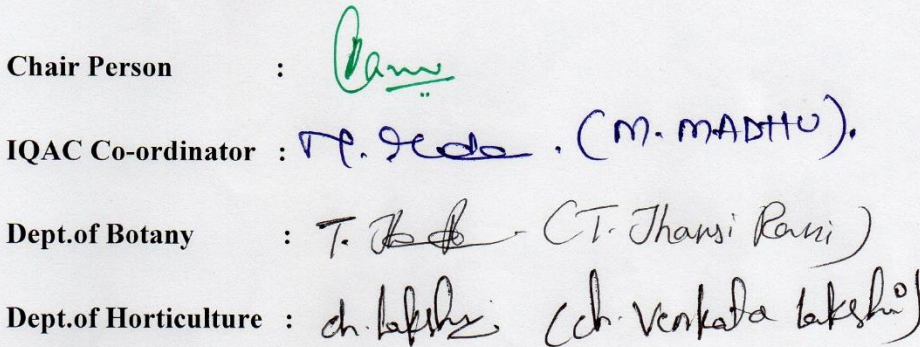 Chair Person :
IQAC Co-ordinator : (M. MADHU).
Dept.of Botany : T. (T. Jhansi Rani)
Dept.of Horticulture : ch. Lakshmi (ch. Venkata Lakshmi)